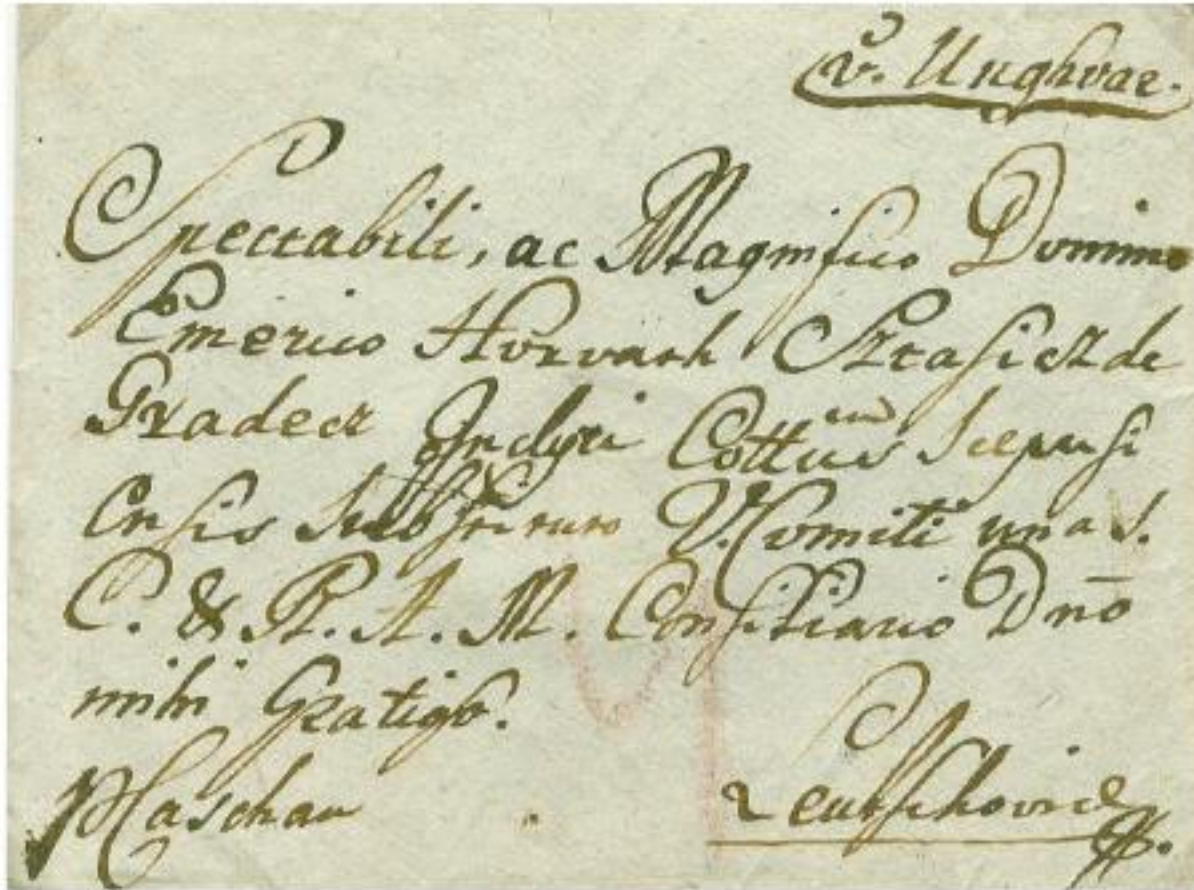 v. Unghvar.
Spectabili, ac Magnifico Domino
Emerico Horvath Sztasicz de
Gradecz Inclyti Cottus Scepusi
Ensis V.Comiti una S.
C. & R. A. M. Consiliario Dno
mihi Gratiosso.
pCaschau